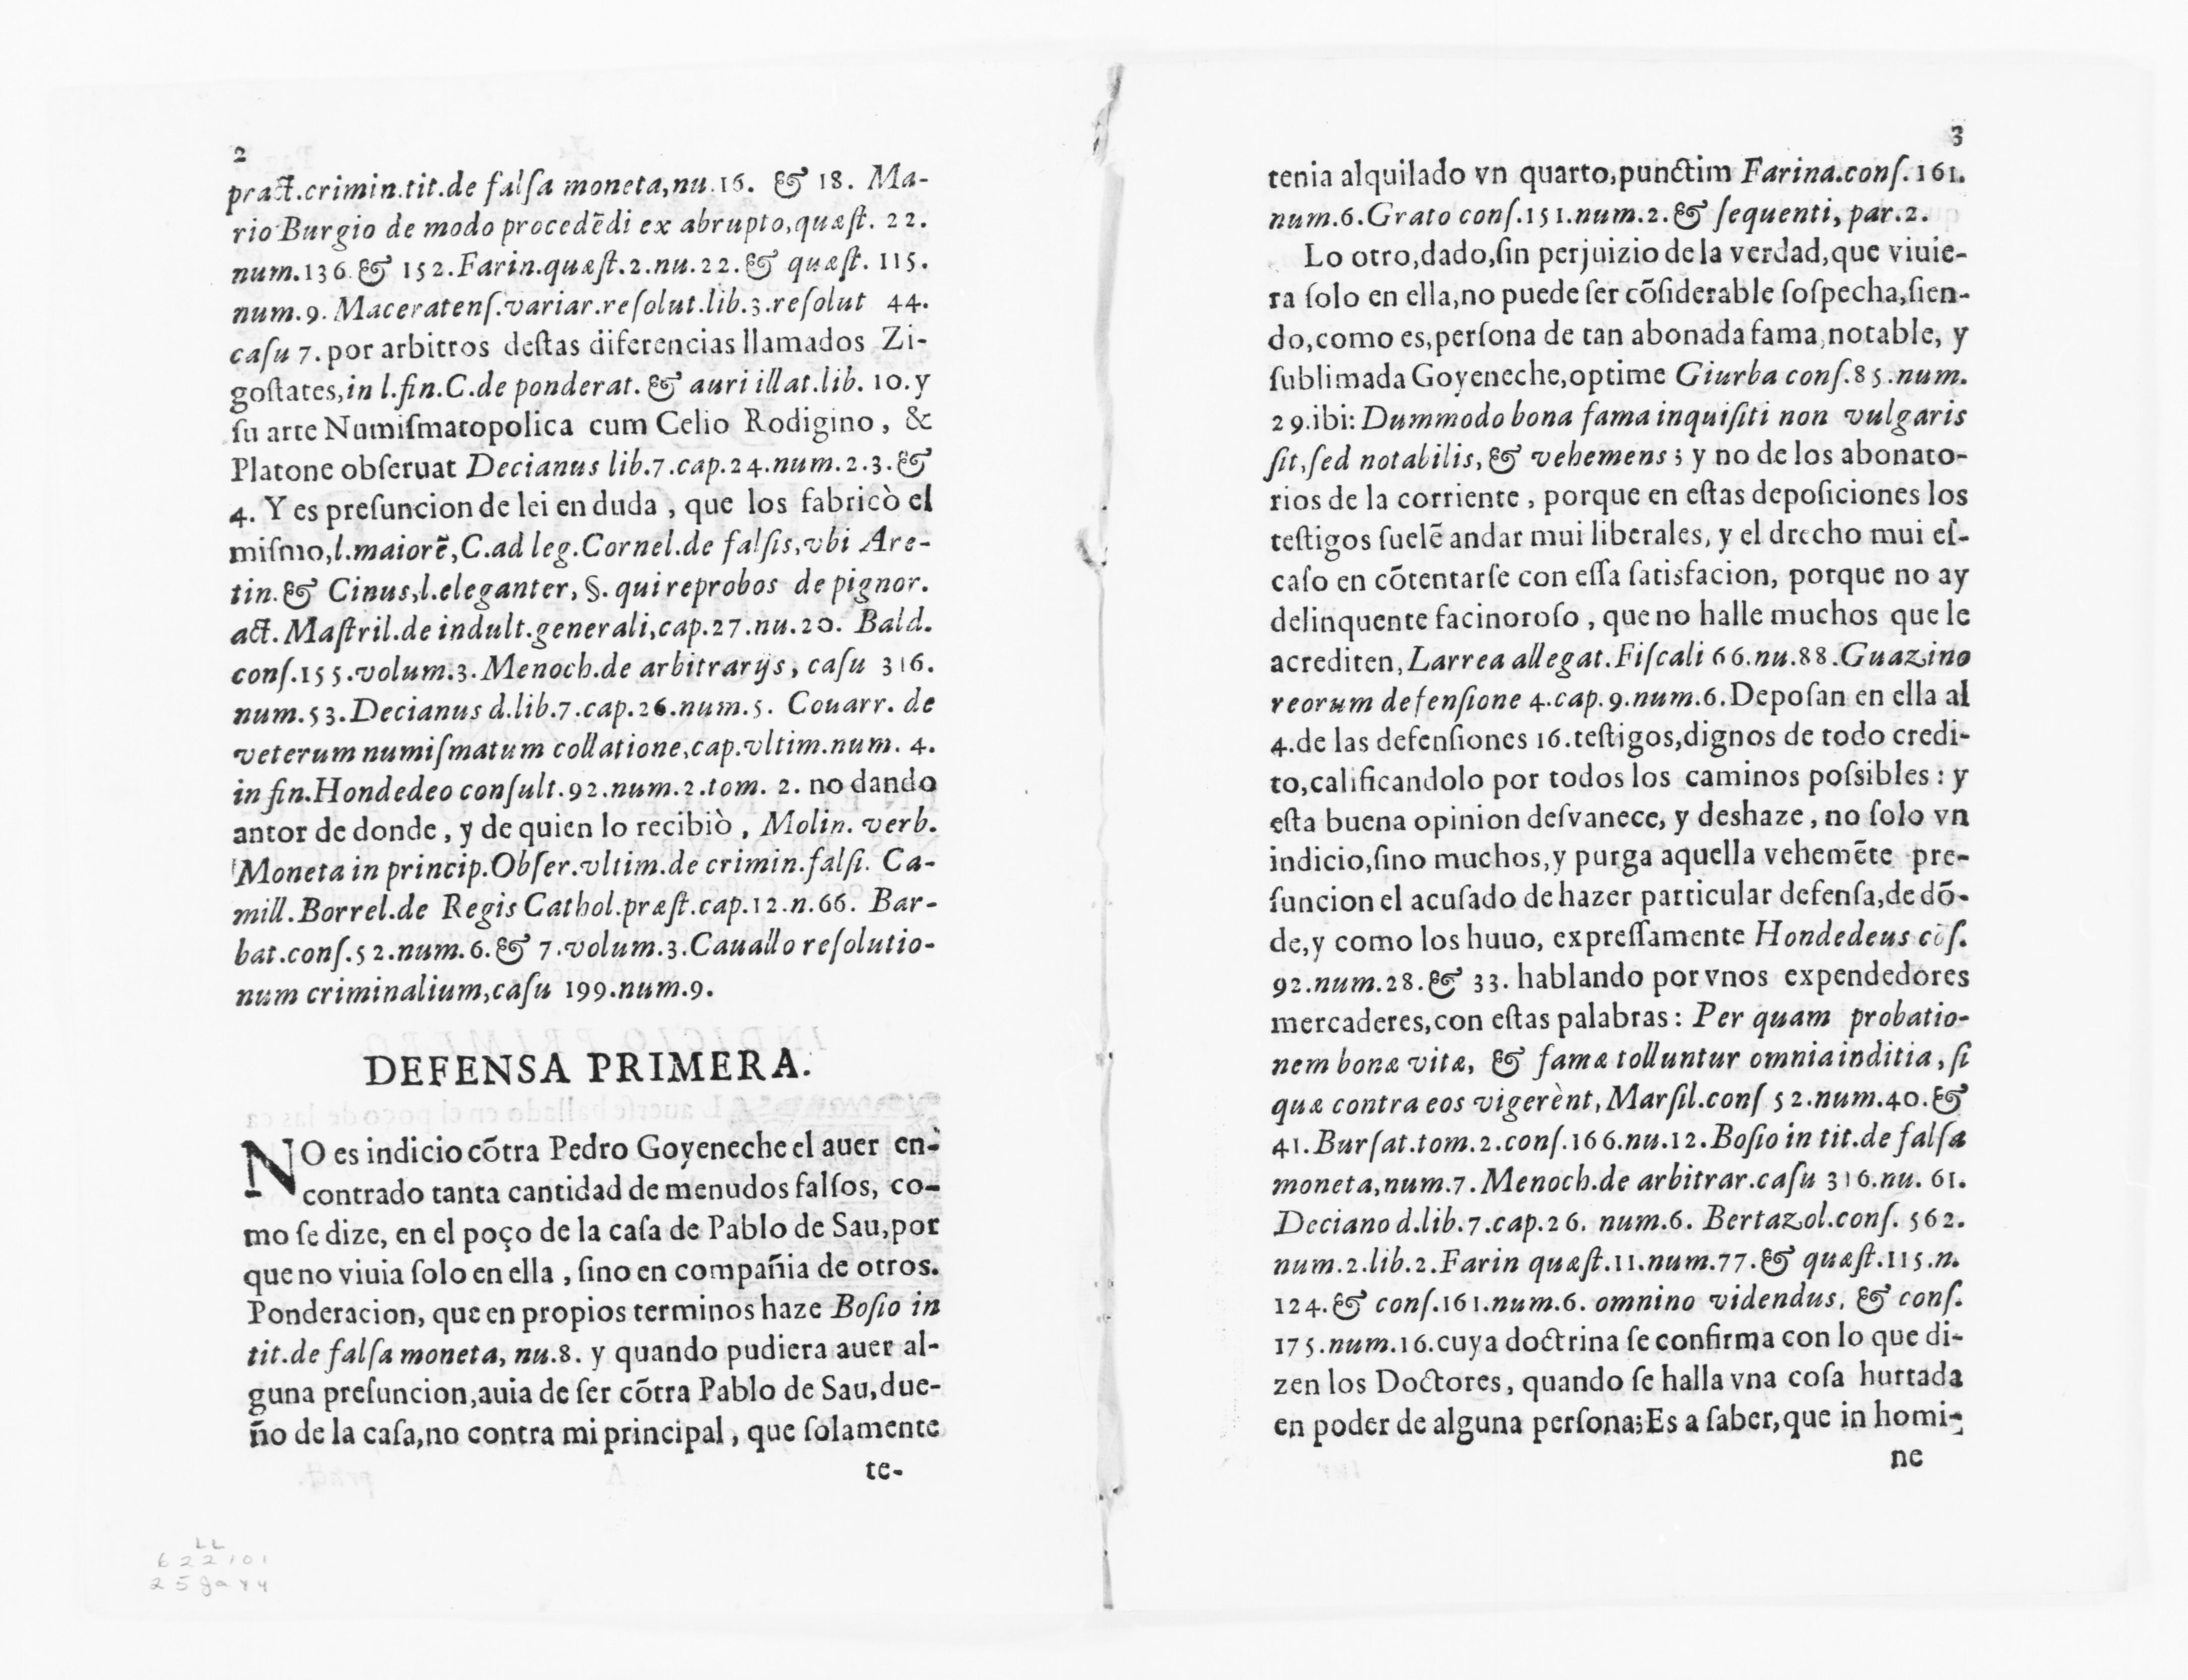 2
pract.crimin.tit.de falſa moneta,nu.16. & 18. Ma-
rio Burgio de modo procedẽdi ex abrupto,quæſt. 22.
num.136.& 152.Farin.quæſt.2.nu.22.& quæſt. 115.
num.9. Maceratenſ.variar.reſolut.lib.3.reſolut 44.
caſu 7. por arbitros deſtas diferencias llamados Zi-
goſtates,in l.fin.C.de ponderat. & auri illat.lib. 10.y
ſu arte Numiſmatopolica cum Celio Rodigino, &
Platone obſeruat Decianus lib.7.cap.24.num.2.3.&
4. Y es preſuncion de lei en duda, que los fabricò el
miſmo,l.maiorẽ,C.ad leg.Cornel.de falſis,vbi Are-
tin.& Cinus,l.eleganter, §. qui reprobos de pignor.
act. Maſtril.de indult.generali,cap.27.nu.20. Bald.
conſ.155.volum.3. Menoch.de arbitrarijs, caſu 316.
num.53.Decianus d.lib.7.cap.26.num.5. Couarr. de
veterum numiſmatum collatione,cap.vltim.num. 4.
in fin.Hondedeo conſult.92.num.2.tom. 2. no dando
antor de donde, y de quien lo recibiò, Molin. verb.
Moneta in princip.Obſer.vltim.de crimin.falſi. Ca-
mill.Borrel.de Regis Cathol.præſt.cap.12.n.66. Bar-
bat.conſ.52.num.6.& 7.volum.3.Cauallo reſolutio-
num criminalium,caſu 199.num.9.
DEFENSA PRIMERA.
NO es indicio cõtra Pedro Goyeneche el auer en-
contrado tanta cantidad de menudos falſos, co-
mo ſe dize, en el poço de la caſa de Pablo de Sau,por
que no viuia ſolo en ella, ſino en compañia de otros.
Ponderacion, que en propios terminos haze Boſio in
tit.de falſa moneta, nu.8. y quando pudiera auer al-
guna preſuncion,auia de ſer cõtra Pablo de Sau,due-
ño de la caſa,no contra mi principal, que ſolamente
te-
3
tenia alquilado vn quarto,punctim Farina.conſ.161.
num.6.Grato conſ.151.num.2.& ſequenti, par.2.
Lo otro,dado,ſin perjuizio de la verdad,que viuie-
ra ſolo en ella,no puede ſer cõſiderable ſoſpecha,ſien-
do,como es,perſona de tan abonada fama,notable, y
ſublimada Goyeneche,optime Giurba conſ.85.num.
29.ibi: Dummodo bona fama inquiſiti non vulgaris
ſit,ſed notabilis, & vehemens; y no de los abonato-
rios de la corriente, porque en eſtas depoſiciones los
teſtigos ſuelẽ andar mui liberales, y el drecho mui eſ-
caſo en cõtentarſe con eſſa ſatisfacion, porque no ay
delinquente facinoroſo, que no halle muchos que le
acrediten, Larrea allegat.Fiſcali 66.nu.88.Guazino
reorum defenſione 4.cap.9.num.6.Depoſan en ella al
4.de las defenſiones 16.teſtigos,dignos de todo credi-
to,calificandolo por todos los caminos poſsibles: y
eſta buena opinion deſvanece, y deshaze, no ſolo vn
indicio,ſino muchos,y purga aquella vehemẽte pre-
ſuncion el acuſado de hazer particular defenſa,de dõ-
de,y como los huuo, expreſſamente Hondedeus cõſ.
92.num.28.& 33. hablando por vnos expendedores
mercaderes,con eſtas palabras: Per quam probatio-
nem bonæ vitæ, & famæ tolluntur omnia inditia, ſi
quæ contra eos vigerènt, Marſil.conſ 52.num.40.&
41.Burſat.tom.2.conſ.166.nu.12.Boſio in tit.de falſa
moneta,num.7. Menoch.de arbitrar.caſu 316.nu. 61.
Deciano d.lib.7.cap.26. num.6. Bertazol.conſ. 562.
num.2.lib.2.Farin quæſt.11.num.77.& quæſt.115.n.
124.& conſ.161.num.6. omnino videndus, & conſ.
175.num.16.cuya doctrina ſe confirma con lo que di-
zen los Doctores, quando ſe halla vna coſa hurtada
en poder de alguna perſona;Es a ſaber,que in homi-
ne
LL
622101
25 Ja 44